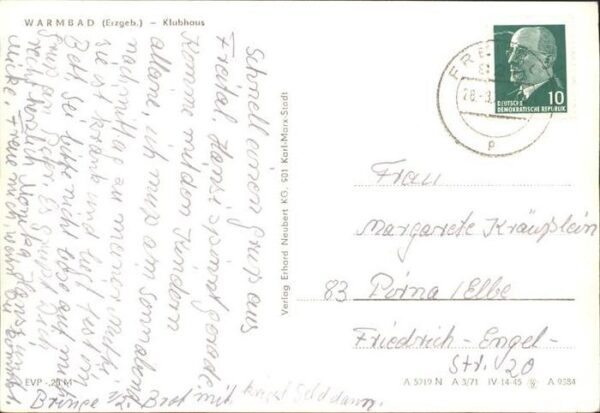 WARMBAD (Erzgeb.) – Klubhaus
Schnell einen Gruß aus
Freital. Hansi spinnt gerade.
Komme mit den Kindern
alleine, ich muß am Sonnabend
nachmittag zu meiner Mutti,
sie ist krank und liegt fest im
Bett. Sei bitte nicht böse auf mich
Gruß an Peter. Es grüßt Dich
recht herzlich Monika, Hansi und
Maike. Freue mich, wenn Du kommst.
Bringe 1/2 Brot mit kriegst Geld dann.
Verlag Erhard Neubert KG, 901 Karl-Marx-Stadt
EVP -,25 M
FRE
28.-8
p
10
DEUTSCHE
DEMOKRATISCHE REPUBLIK
Frau
Margarete Kräußlein
83 Pirna /Elbe
Friedrich-Engel-
Str. 20
A 5919 N A 3/71 IV-14-45 A 9584